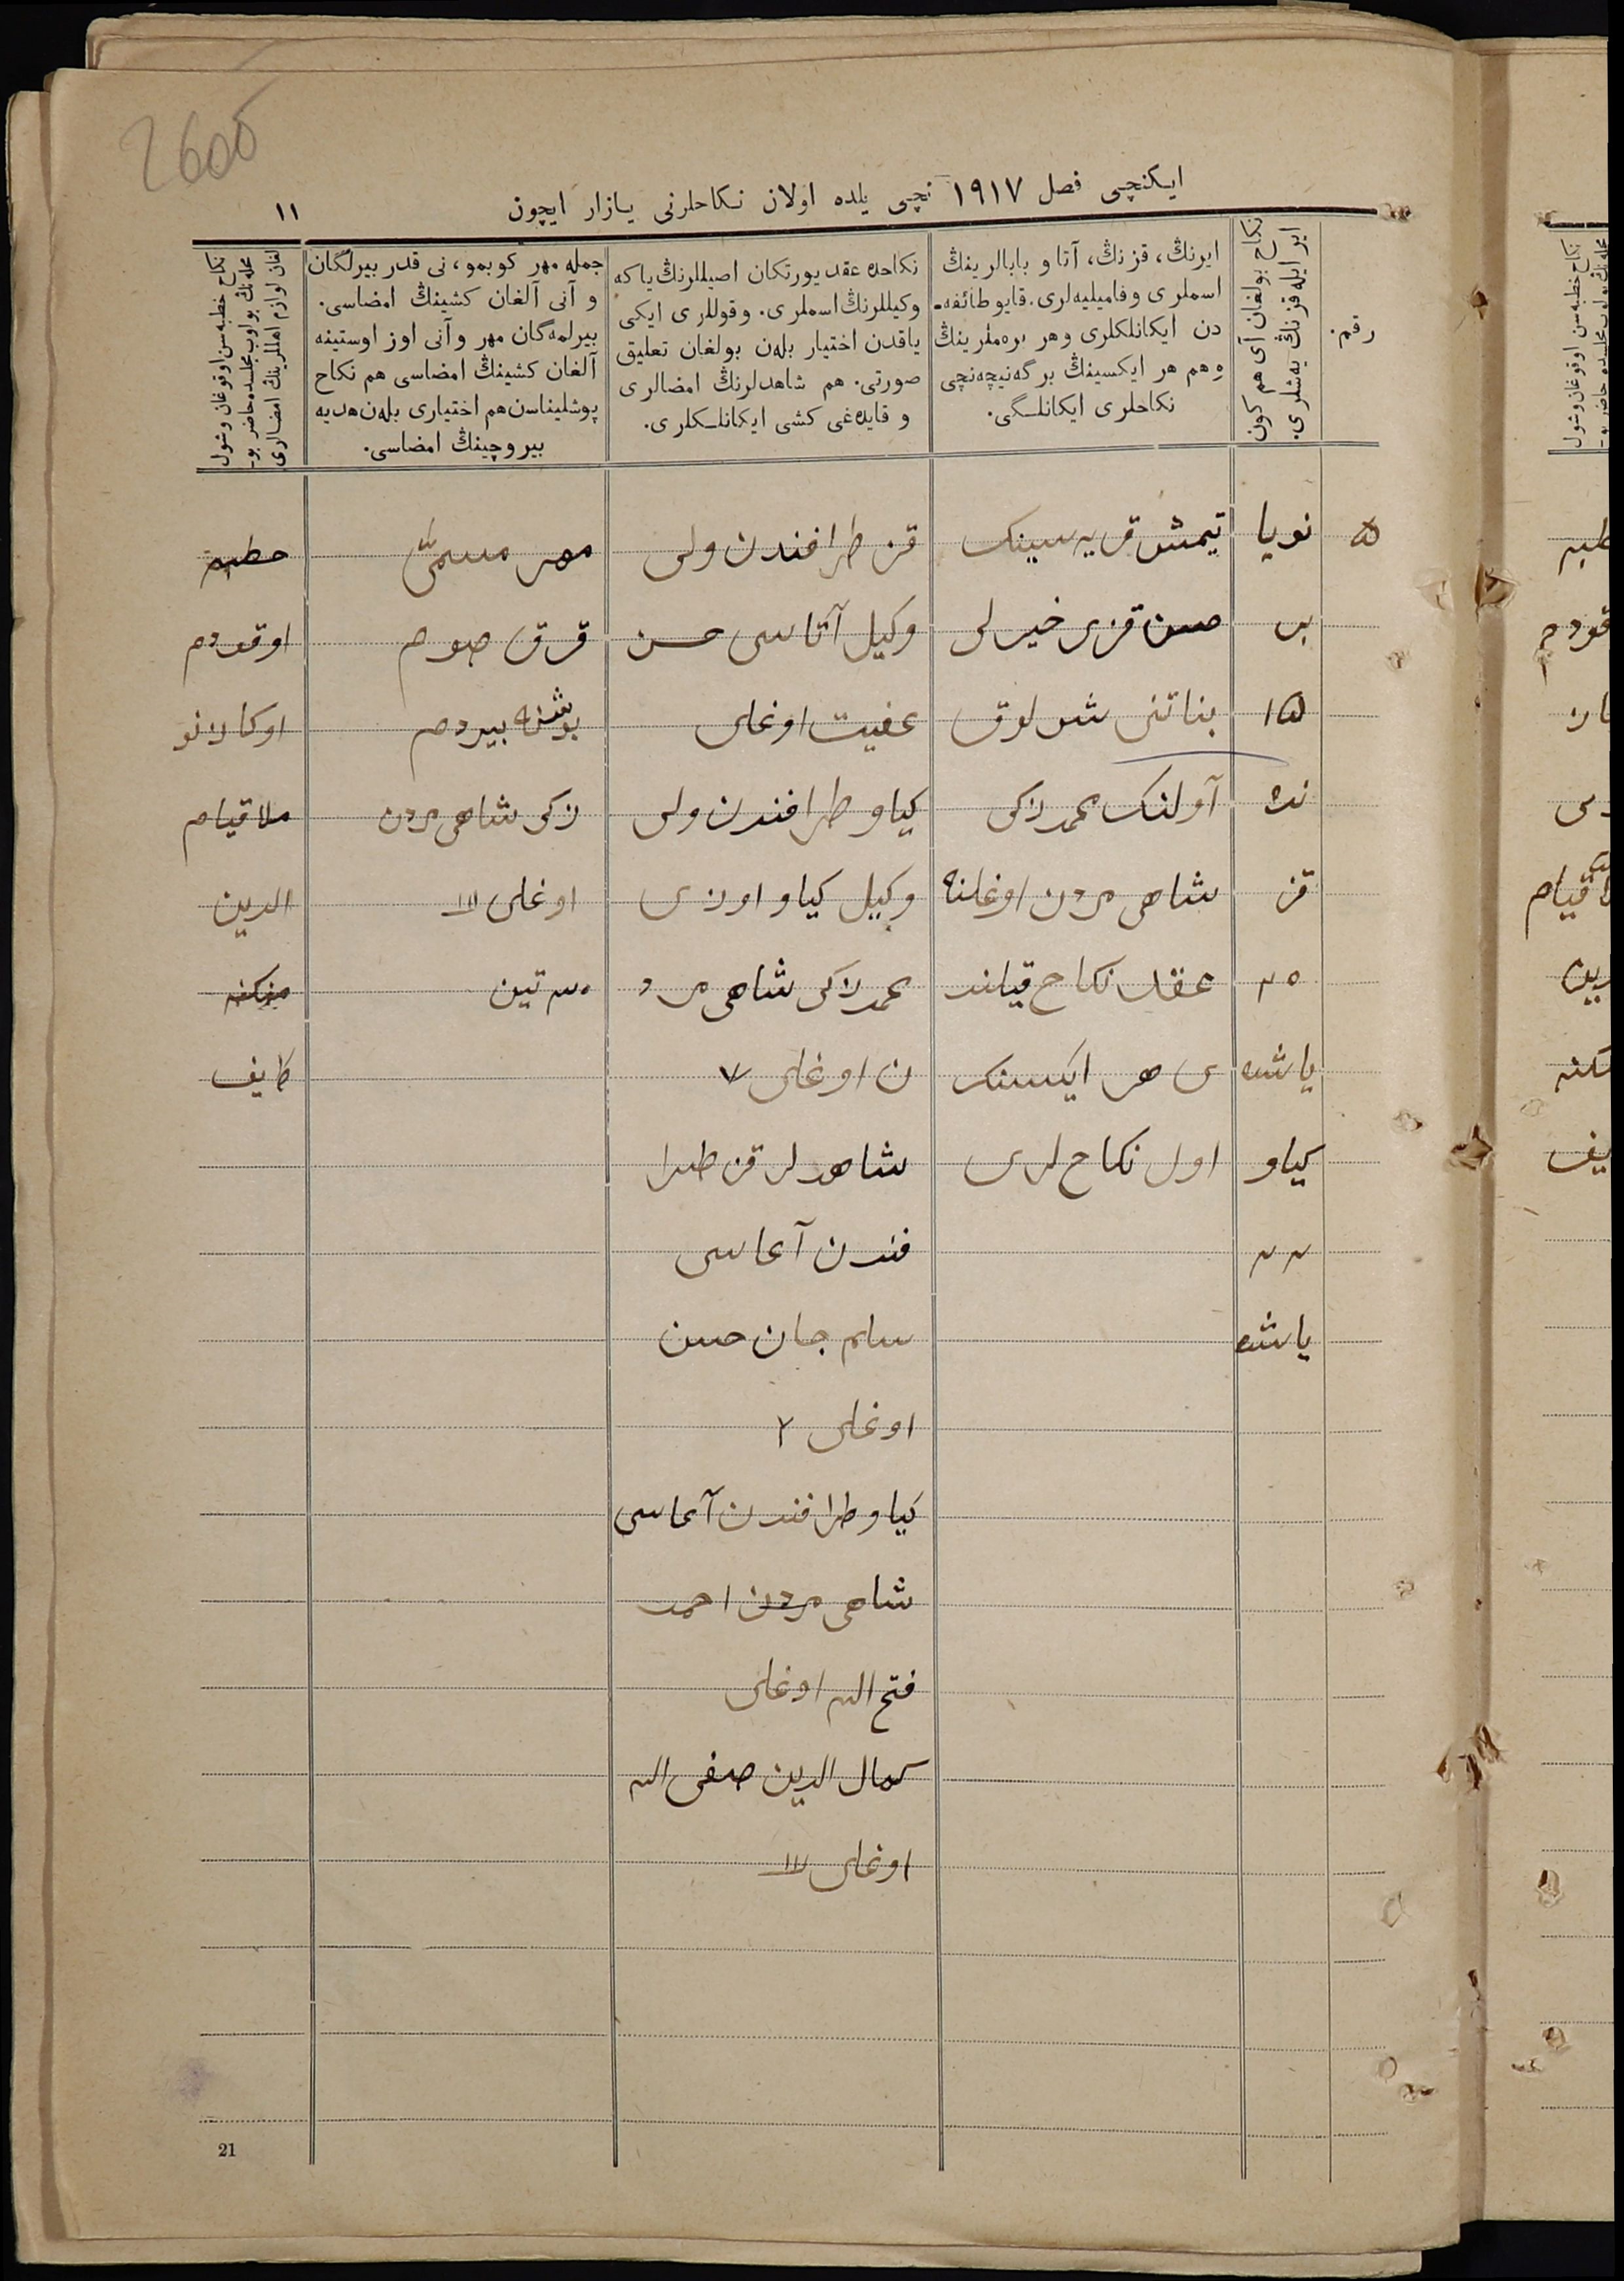 2605
ایکنچی فصل ۱۹۱۷ نچی یلده اولان نکاحلرنی یازار ایچون
۱۱
رقم.
ایر ایله قزنڭ یه‌شلری.
نکاح بولغان آی هم کون
ایرنڭ، قزنڭ، آتا و بابالرینڭ
اسملری وفامیلیه‌لری. قایو طائفه‌-
دن ایکانلکلری وهر بره‌ملرینڭ
هم هر ایکسینڭ برگه نیچه‌نچی
نکاحلری ایکانلـگی.
نکاحده عقد یورتکان اصیللرنڭ یا که
وکیللرنڭ اسملری. وقوللری ایکی
یاقدن اختیار بله‌ن بولغان تعلیق
صورتی. هم شاهدلرنڭ امضالری
و قایده‌غی کشی ایکانلـکلری.
جمله مهر کوبمو، نی قدر بیرلگان
و آنی آلغان کشینڭ امضاسی.
بیرلمه‌گان مهر وآنی اوز اوستینه
آلغان کشینڭ امضاسی هم نکاح
پوشلیناسن هم اختیاری بله‌ن هدیه
بیروچینڭ امضاسی.
نکاح خطبه‌سن اوقوغان وشول
محله‌نڭ بولوب مجلسده حاضر بو-
لغان لوازم اهللرینڭ امضالری
۵
نویا
بر
۱۵
نده
قز
۲۰
یاشه
کیاو
۲۲
یاشه
تیمش قریه سینک
حسن قزی خیرلی
بناتنی شول لوق
آولنک محمد زکی
شاهی مردن اوغلنه
عقد نکاح قیلند
ی هر ایکسنک
اول نکاح لری
قز طرافندن ولی
وکیل آتاسی حسن
عفیت اوغلی
کیاو طرافندن ولی
وکیل کیاو اوزی
محمد زکی شاهی مرد
ن اوغلی
شاهد لر قز طرا
فندن آغاسی
سلم جان حسن
اوغلی
کیاو طرافندن آغاسی
شاهی مردن احمد
فتح الله اوغلی
کمال الدین صفی الله
اوغلی
مهر مسمیّ
قرق صوم
بوشنه بیردم
زکی شاهی مردن
اوغلی
تین
خطبه
اوقودم
اوکازنو
ملا قیام
الدین
طایف
21